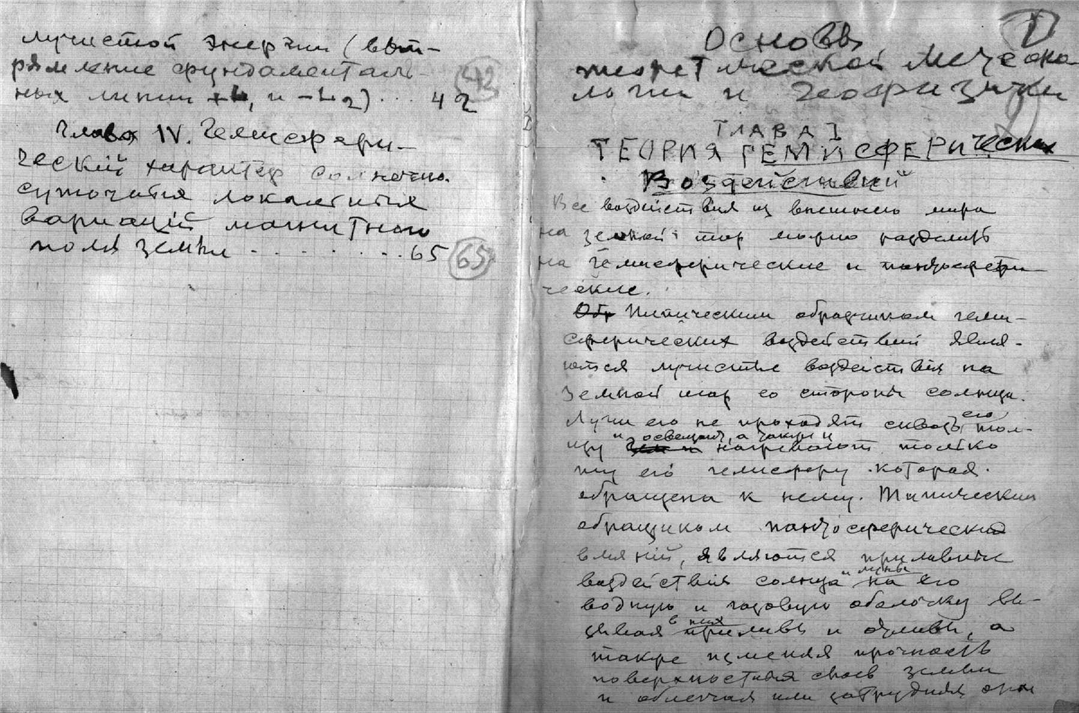 лучистой энергии (выт-
рямление фундаменталь
ных линий +L, и -L2) ... 42
43
Глава IV. Гемисфери-
ческий характер солнечно
суточныя локальныя
вариаций магнитного
поля земли . . . . . . . 65
65
1
Основы
теоретической метеоро
логии и геофизики
ГЛАВА I
ТЕОРИЯ ГЕМИСФЕРИческих
Воздействий
Все воздействия из внешнего мира
на земной шар можно разделить
на гемисферические и панцосфери-
ческие.
Типическим образчиком геми-
сферических воздействий явля-
ются лучистые воздействия на
Земной шар со стороны солнца.
Лучи его не проходят сквозь его тол-
щу и освещают, а также и нагревают только
ту его гемисферу которая
обращена к нему. Типическим
образчиком панцосферических
влияний, являются приливные
воздействия солнца и луны на его
водную и газовую оболочку вы-
зывая в них приливы и отливы, а
также изменяя прочность
поверхностных слоев земли
и облегчая или затрудняя